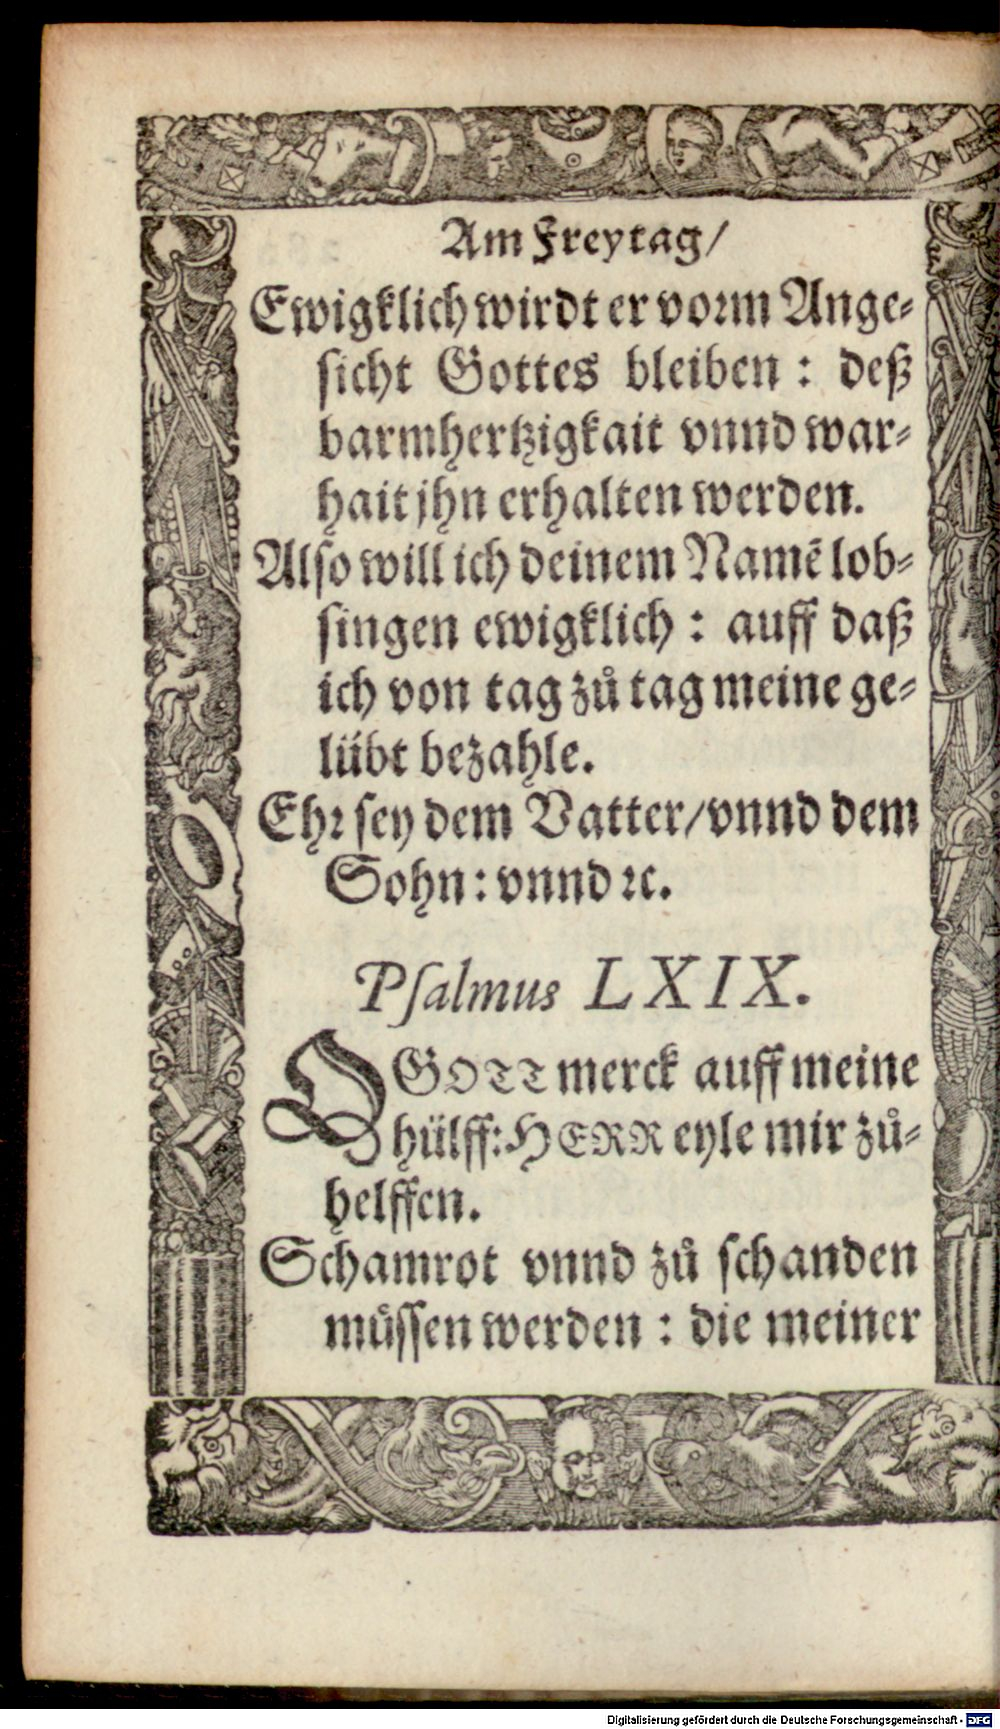 Am Freytag/
Ewigklich wirdt er vorm Ange⸗
sicht Gottes bleiben : deß
barmhertzigkait vnnd war⸗
hait jhn erhalten werden.
Also will ich deinem Namē lob⸗
singen ewigklich : auff daß
ich von tag zů tag meine ge⸗
lübt bezahle.
Ehr sey dem Vatter/vnnd dem
Sohn: vnnd ꝛc.
Psalmus LXIX.
O GOTT merck auff meine
hülff: HERR eyle mir zů⸗
helffen.
Schamrot vnnd zů schanden
müssen werden : die meiner
Digitalisierung gefördert durch die Deutsche Forschungsgemeinschaft - DFG